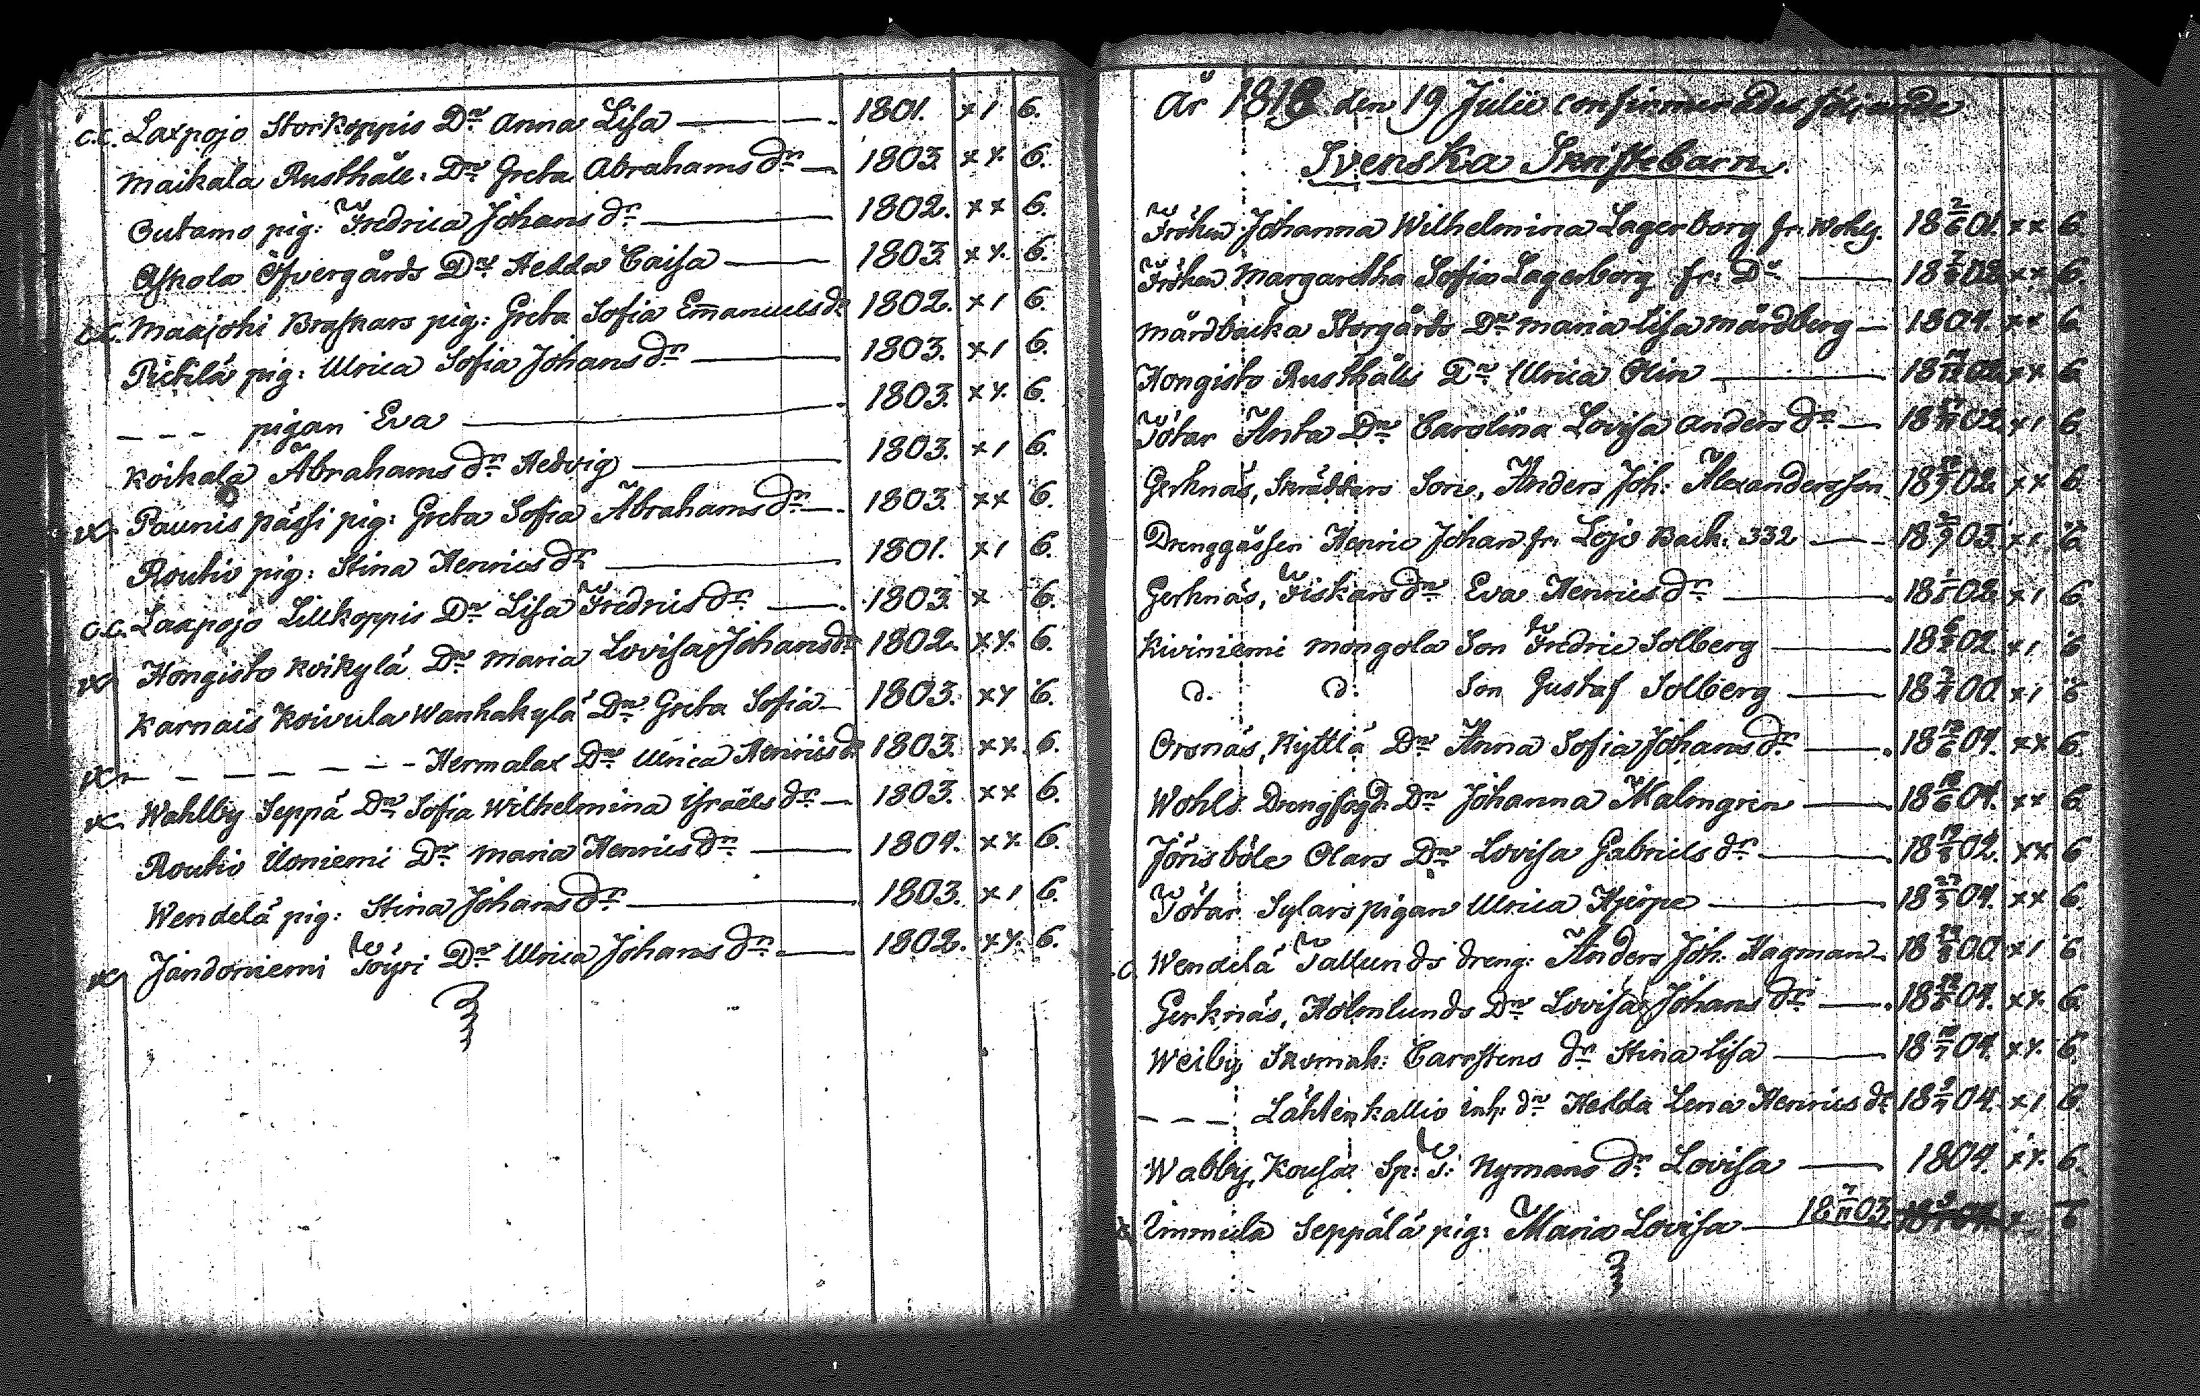 c.c. Laxpojo Storkoppis Dr Anna Lisa — 1801. x 1 6.
Maikala Rusthåll: Dr Greta Abrahams dr — 1803. x x 6.
Outamo pig: Fredrica Johans dr — 1802. x x 6.
Askola Öfvergårds Dr Hedda Caisa — 1803. x x 6.
c.c. Maajohi Braskars pig: Greta Sofia Emanuels dr 1802. x 1 6.
Pickilä pig: Ulrica Sofia Johans dr — 1803. x 1 6.
– – – pigan Eva — 1803. x x 6.
Koikala Abrahams dr Hedvig — 1803. x 1 6.
Paunis pässi pig: Greta Sofia Abrahams dr — 1803. x x 6.
Routio pig: Stina Henrics dr — 1801. x 1 6.
c.c. Laxpojo Lillkoppis Dr Lisa Fredrics dr — 1803. x 6.
Hongisto Koikylä Dr Maria Lovisa Johans dr 1802. x x 6.
Karnais Koivula Wanhakylä Dr Greta Sofia — 1803. x x 6.
– – – – – – Hermalax Dr Ulrica Henrics dr 1803. x x 6.
Wahlby Seppä Dr Sofia Wilhelmina Israëls dr — 1803. x x 6.
Routio Uoniemi Dr Maria Henrics dr — 1804. x x 6.
Wendelä pig: Stina Johans dr — 1803. x 1 6.
Jandoniemi Töyri Dr Ulrica Johans dr — 1802. x x 6.
År 1818 den 19 Julii confirmerades följande
Svenska Skriftebarn.
Fröken Johanna Wilhelmina Lagerborg fr. Wohls. 18 2/6 01. x x 6.
Fröken Margaretha Sofia Lagerborg fr: Do — x x 6.
Mårdbacka Storgårds Dr Maria Lisa Mårdberg — 1804. x x 6
Hongisto Rusthålls Dr Ulrica Olin — x x 6
Tötar Anta Dr Carolina Lovisa Anders dr — x 1 6
Gerknäs, Skräddars Son, Anders Joh: Alexandersson x x 6.
Drenggåssen Henric Johan fr. Lojo Back: 332 — x 1 6.
Gerknäs, Fiskars dr Eva Henrics dr — x 1 6
Kiviniemi Mongola Son Fredric Solberg — x 1 6
d. d: Son Gustaf Solberg — x 1 6
Orsnäs, Kyttlä Dr Anna Sofia Johans dr — x x 6.
Wohls Drengfogd. Dr Johanna Malmgren — x x 6
Jönsböle Olars Dr Lovisa Gabriels dr — x x 6
Tötar Sylars pigan Ulrica Hjerpe — x x 6.
Wendelä Tallunds dreng: Anders Joh. Hagman — x 1 6
Gerknäs, Holmlunds Dr Lovisa Johans dr — x x 6
Weiby Skomak: Carstens dr Stina Lisa — x x 6
– – – Lähtenkallio inh: dr Hedda Lena Henrics dr x 1 6.
Wabby, Kousa Sp: T: Nymans dr Lovisa — 1804. x x 6.
Immula Seppälä pig: Maria Lovisa — 18 7/11 03 6